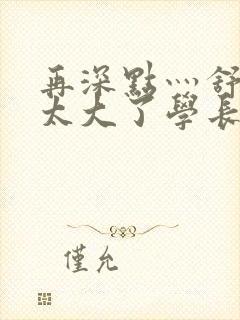 再深點灬舒
太大了學長
僅允